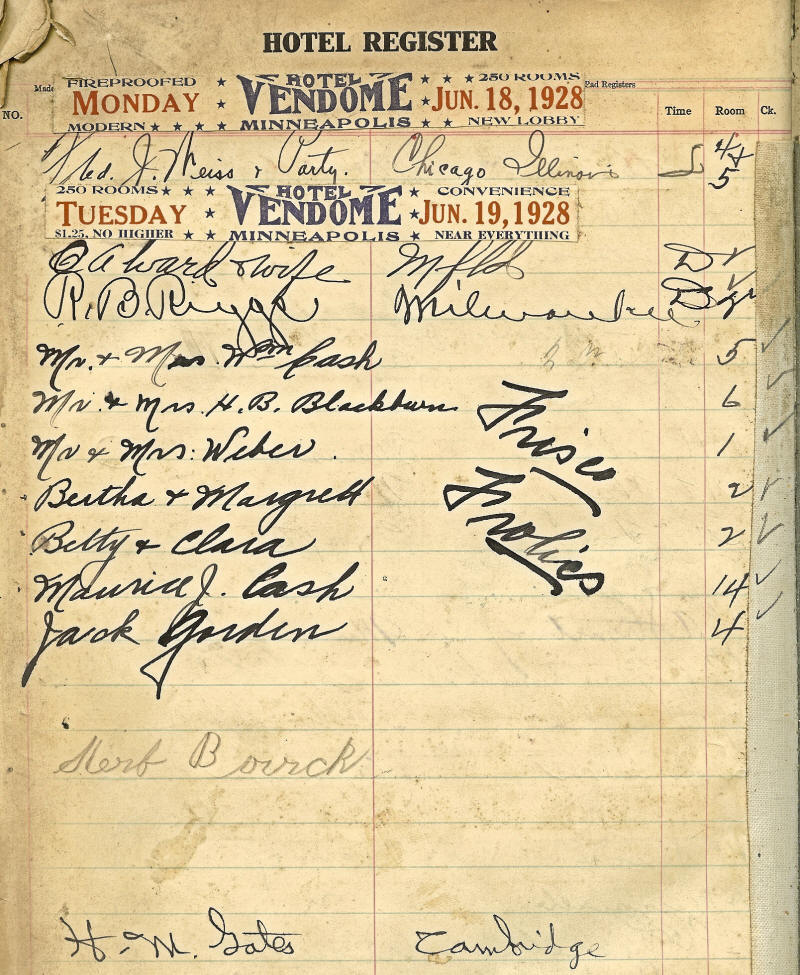 HOTEL REGISTER
Made
Pad Registers
NO. Time Room Ck.
FIREPROOFED ★ HOTEL ★ ★ ★ 250 ROOMS
MONDAY ★ VENDOME ★ JUN. 18, 1928
MODERN ★ ★ ★ ★ MINNEAPOLIS ★ ★ NEW LOBBY
J. Weiss & Party. Chicago Illinois 44
5
250 ROOMS ★ ★ ★ HOTEL ★ CONVENIENCE
TUESDAY ★ VENDOME ★ JUN. 19, 1928
$1.25, NO HIGHER ★ ★ MINNEAPOLIS ★ NEAR EVERYTHING
Alward & wife Mplds D
R. B. Riggs Milwaukee
Mr. & Mrs. Wm Cash 5
Mr. & Mrs. H. B. Blackburn 6
Mr & Mrs. Weber. 1
Frisco
Bertha & Margrett 2
Frolics
Betty & Clara 2
Maurice J. Cash 14
Jack Gorden 4
Herb Bourck
H. M. Gates Cambridge